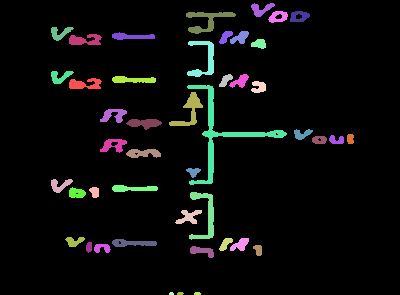 V_DD
V_b2 M_4
V_b2 M_3
R_op
R_on
V_out
V_b1
X
V_in M_1